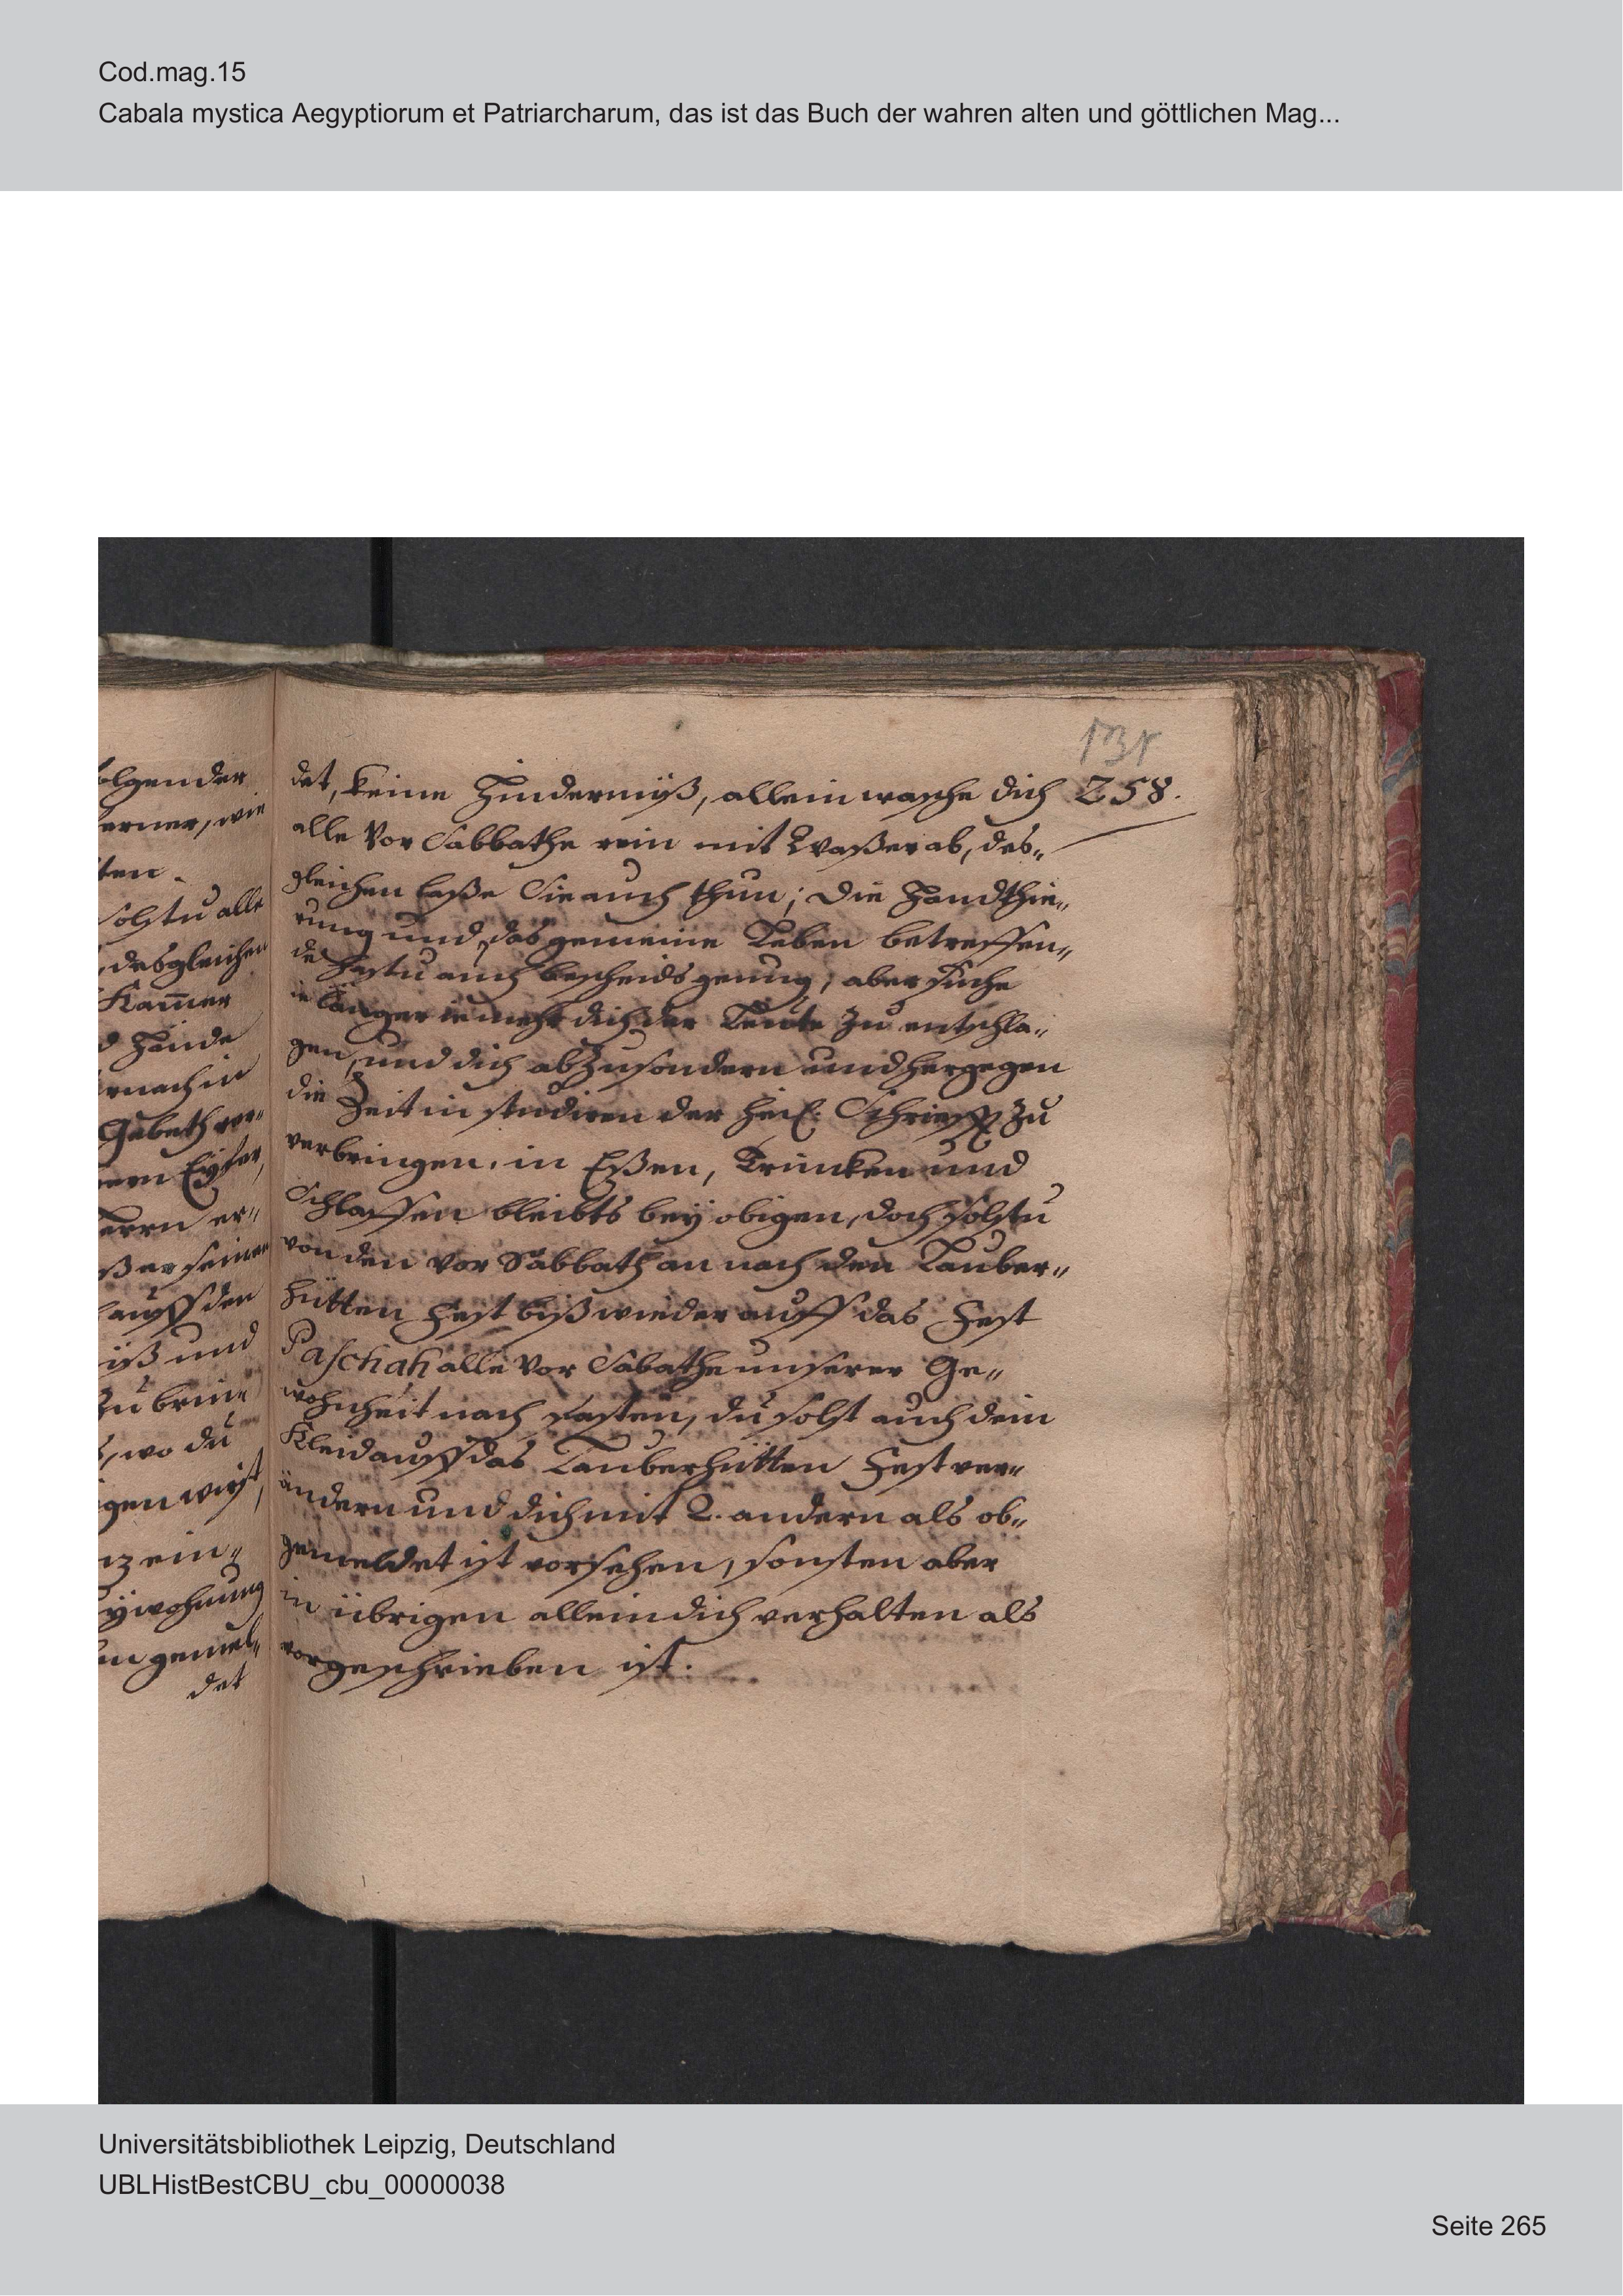 Cod.mag.15
Cabala mystica Aegyptiorum et Patriarcharum, das ist das Buch der wahren alten und göttlichen Mag...
olgender
erner, wie
ten.
solstu alle
, desgleichen
Kam̄er
d Hände
rnach in
Gebeth ver„
ern Eyfer,
Herrn er„
ßer seiner
auff den
üß und
Zu brin
, wo du
gen wirst,
nz ein„
ywohnung
en gemel„
det
131
258.
det, keine Hindernüß, allein wasche dich
alle Vor Sabbathe rein mit Waßer ab, des„
gleichen laße Sie auch thun; Die Handthie„
rung und das gemeine Leben betreffen„
de hastu auch bescheids genug, aber suche
ie länger ie mehr dich der Leute Zu entschla„
gen, und dich abzusondern und hergegen
die Zeit in studiren der heil. Schriefft Zu
verbringen. in Eßen, Trincken und
Schlaffen bleibts bey obigen, doch solstu
von den Vor Sabbath an nach den Lauber„
hütten Fest biß wieder auff das Fest
Paschah alle Vor Sabathe unserer Ge„
wohnheit nach fasten, du solst auch dein
Kleid auff das Lauberhütten Fest ver„
ändern und dich mit 2. andern als ob„
gemeldet ist vorsehen, sonsten aber
in übrigen allein dich verhalten als
vorgeschrieben ist.
Universitätsbibliothek Leipzig, Deutschland
UBLHistBestCBU_cbu_00000038
Seite 265